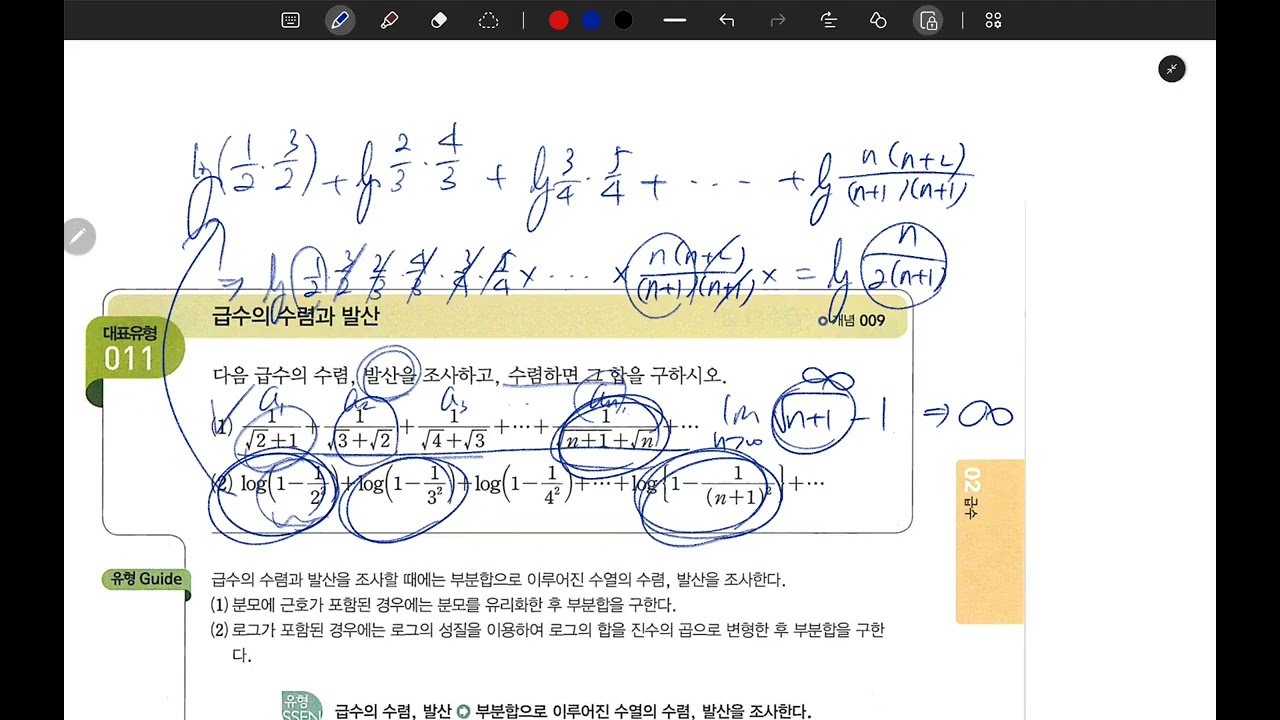 log(1/2 · 3/2) + log 2/3 · 4/3 + log 3/4 · 5/4 + ··· + log n(n+2)/(n+1)(n+1)
⇒ log 1/2 · 3/2 · 2/3 · 4/3 · 3/4 · 5/4 × ··· × n(n+2)/(n+1)(n+1) × = log n/2(n+1)
급수의 수렴과 발산
개념 009
대표유형
011
다음 급수의 수렴, 발산을 조사하고, 수렴하면 그 합을 구하시오.
a₁ a₂ a₃ ··· aₙ
∞
(1) 1/(√2+1) + 1/(√3+√2) + 1/(√4+√3) + ··· + 1/(√n+1+√n) + ···
lim n→∞ √n+1 - 1 ⇒ ∞
(2) log(1-1/2²)+log(1-1/3²)+log(1-1/4²)+···+log{1-1/(n+1)²}+···
02 급수
유형 Guide
급수의 수렴과 발산을 조사할 때에는 부분합으로 이루어진 수열의 수렴, 발산을 조사한다.
(1) 분모에 근호가 포함된 경우에는 분모를 유리화한 후 부분합을 구한다.
(2) 로그가 포함된 경우에는 로그의 성질을 이용하여 로그의 합을 진수의 곱으로 변형한 후 부분합을 구한
다.
유형
SSEN
급수의 수렴, 발산 ➲ 부분합으로 이루어진 수열의 수렴, 발산을 조사한다.